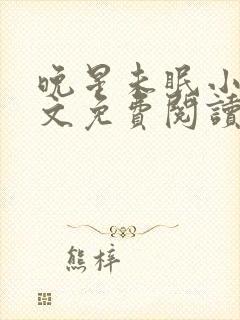 晚星未眠小
文免費閱讀
熊梓